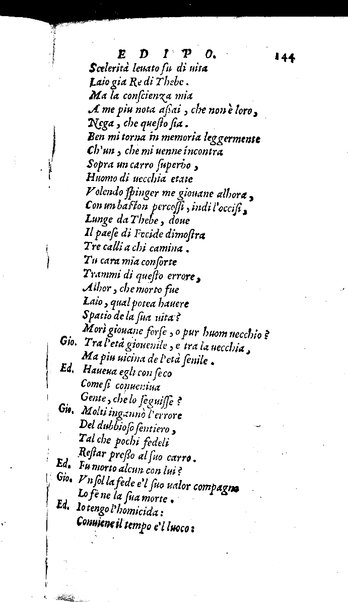 EDIPO. 144
Scelerità leuato fu di uita
Laio gia Re di Thebe.
Ma la conscienza mia
A me piu nota assai, che non è loro,
Nega, che questo sia.
Ben mi torna in memoria leggermente
Ch'un, che mi uenne incontra
Sopra un carro superbo,
Huomo di uecchia etate
Volendo spinger me giouane alhora,
Con un baston percossi, indi l'occisi,
Lunge da Thebe, doue
Il paese di Focide dimostra
Tre calli a chi camina.
Tu cara mia consorte
Trammi di questo errore,
Alhor, che morto fue
Laio, qual potea hauere
Spatio de la sua uita?
Morì giouane forse, o pur huom uecchio?
Gio. Tra l'età giouenile, e tra la uecchia,
Ma piu uicina de l'età senile.
Ed. Haueua egli con seco
Come si conueniua
Gente, che lo seguisse?
Gio. Molti ingannò l'errore
Del dubbioso sentiero,
Tal che pochi fedeli
Restar presso al suo carro.
Ed. Fu morto alcun con lui?
Gio. Vn sol la fede e'l suo ualor compagno
Lo fe ne la sua morte.
Ed. Io tengo l'homicida:
Conuiene il tempo e'l luoco: